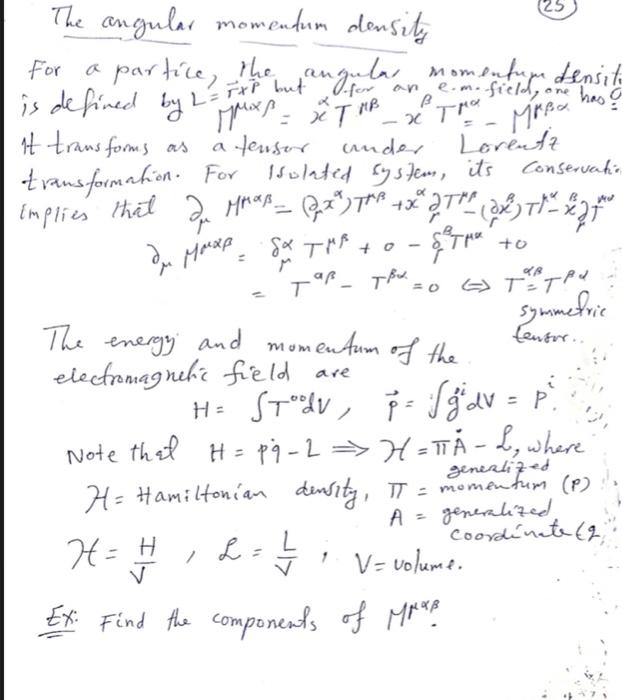 The angular momentum density
(25)
For a partice, the angular momentum densit
is defined by L = r×p but for an e.m. field, one has
M^{μαβ} = x^α T^{μβ} - x^β T^{μα} = - M^{μβα}
It transforms as a tensor under Lorentz
transformation. For Isolated system, its conservati
implies that ∂_μ M^{μαβ} = (∂_μ x^α) T^{μβ} + x^α ∂_μ T^{μβ} - (∂_μ x^β) T^{μα} - x^β ∂_μ T^{μα}
∂_μ M^{μαβ} = δ^α_μ T^{μβ} + 0 - δ^β_μ T^{μα} + 0
= T^{αβ} - T^{βα} = 0 ⇔ T^{αβ} = T^{βα}
symmetric
tensor..
The energy and momentum of the
electromagnetic field are
H = ∫T^{00}dV, p⃗ = ∫g^i dV = p^i.
Note that H = pq̇ - L ⇒ ℋ = πȦ - ℒ, where
ℋ = Hamiltonian density, π = generalized momentum (p)
A = generalized
coordinate (q
ℋ = H/V, ℒ = L/V, V = volume.
Ex: Find the components of M^{μαβ}.